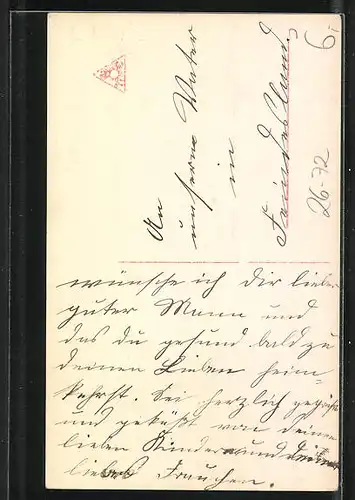 An
unseren Vater
in
Feindes Land.
6,-
26-72
wünsche ich Dir lieber
guter Mann und
das du gesund bald zu
deinen Lieben heim-
kehrst. Sei herzlich gegrüßt
und geküßt von deinen
lieben Kinder und deiner
liebes Frauchen.